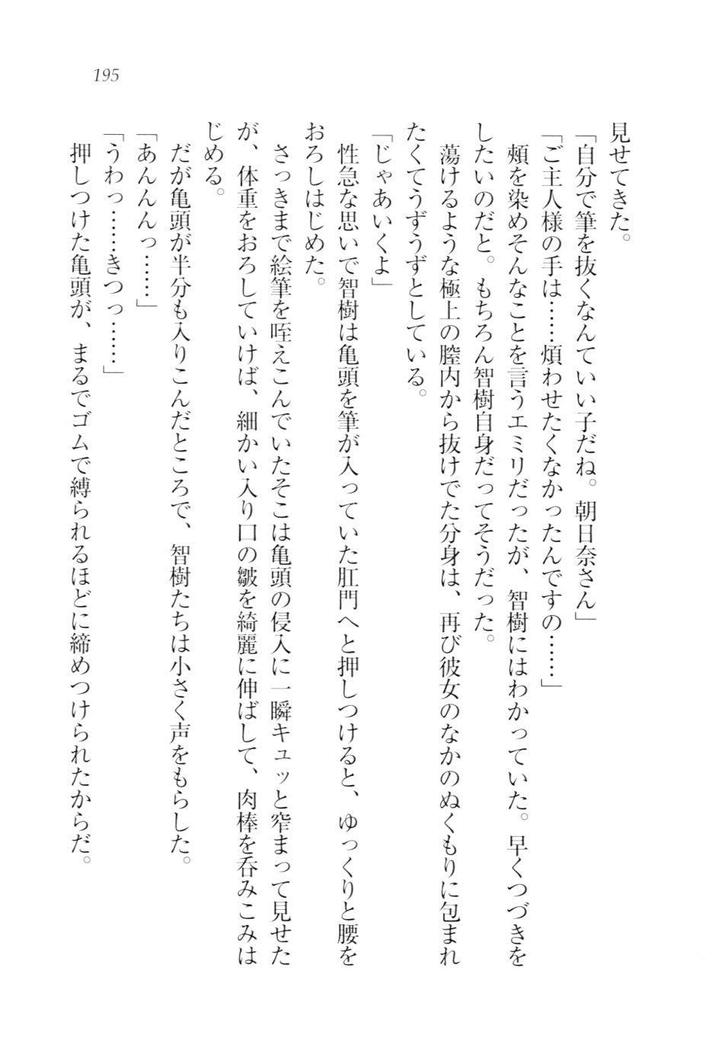 195
見せてきた。
「自分で筆を抜くなんていい子だね。朝日奈さん」
「ご主人様の手は……煩わせたくなかったんですの……」
頬を染めそんなことを言うエミリだったが、智樹にはわかっていた。早くつづきを
したいのだと。もちろん智樹自身だってそうだった。
蕩けるような極上の膣内から抜けでた分身は、再び彼女のなかのぬくもりに包まれ
たくてうずうずとしている。
「じゃあいくよ」
性急な思いで智樹は亀頭を筆が入っていた肛門へと押しつけると、ゆっくりと腰を
おろしはじめた。
さっきまで絵筆を咥えこんでいたそこは亀頭の侵入に一瞬キュッと窄まって見せた
が、体重をおろしていけば、細かい入り口の皺を綺麗に伸ばして、肉棒を呑みこみは
じめる。
だが亀頭が半分も入りこんだところで、智樹たちは小さく声をもらした。
「あんんんっ……」
「うわっ……きつっ……」
押しつけた亀頭が、まるでゴムで縛られるほどに締めつけられたからだ。